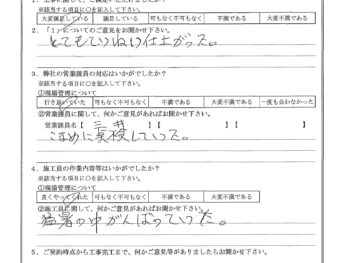 1．工事に関して、ご満足いただけましたか？
※該当する項目に○を記入して下さい。
大変満足している 満足している 可もなく不可もなく 不満である 大変不満である
2．「1」についてのご意見をお聞かせ下さい。
とてもていねい仕上がった。
3．弊社の営業課員の対応はいかがでしたか？
※該当する項目に○を記入して下さい。
①現場管理について
行き届いていた 可もなく不可もなく 不満である 大変不満である 一度も会わなかった
②営業課員に関して、何かご意見があればお聞かせ下さい。
営業課員名【 三井 】【 】【 】
こまめに点検していった。
4．施工員の作業内容等はいかがでしたか？
※該当する項目に○を記入して下さい。
①現場管理について
良くやってくれた 可もなく不可もなく 不満である 大変不満である
②施工員に関して、何かご意見があればお聞かせ下さい。
猛暑の中がんばっていった。
5．ご契約時点から工事完工まで、何かご意見等がありましたらお聞かせ下さい。